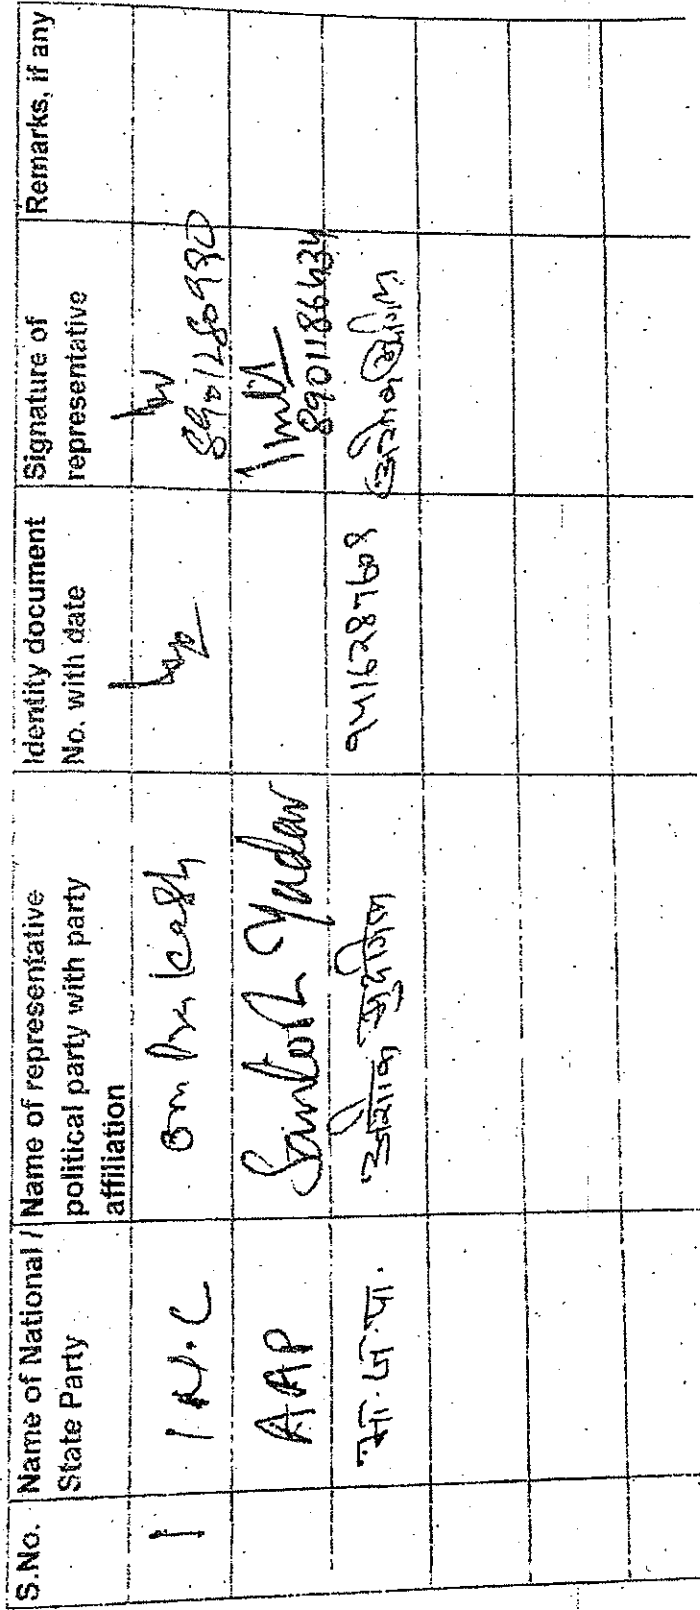 S.No. Name of National / State Party Name of representative political party with party affiliation Identity document No. with date Signature of representative Remarks, if any
1 I N.C Om Prakash 8901280980
AAP Santosh Yadav 8901186434
भा.ज.पा. अशोक 9416287608